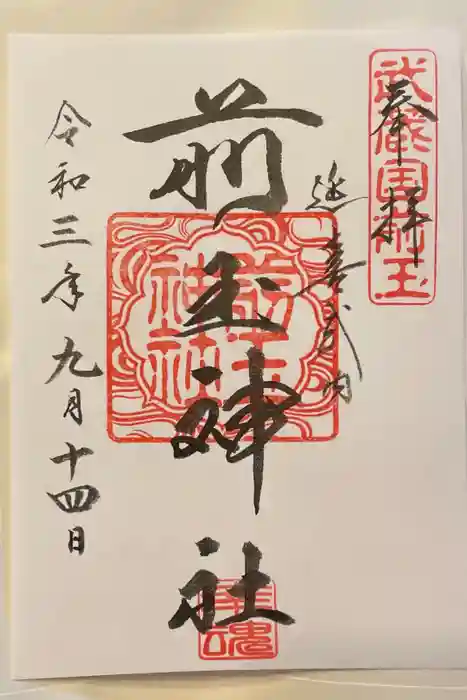 奉拝
武蔵国前玉
延喜式内
前玉神社
前玉神社
幸魂
令和三年九月十四日